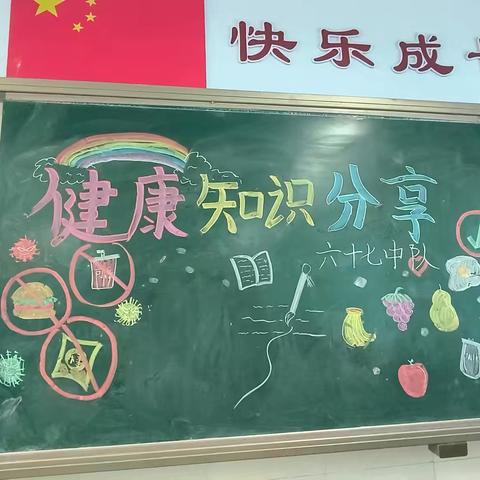 快乐成
健康知识分享
六十七中队